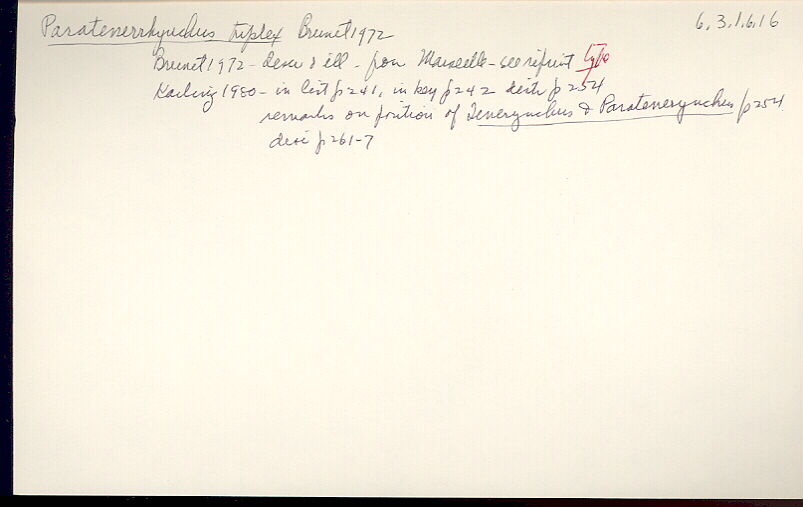 Paratenerrhynchus triplex Brunet 1972
6.3.1.6.16
Brunet 1972 - descr & ill - from Marseille - see reprint Type
Karling 1980 - in list p 241, in key p 242 distr p 254
remarks on position of Tenerynchus & Paratenerynchus p 254
desc p 261-7